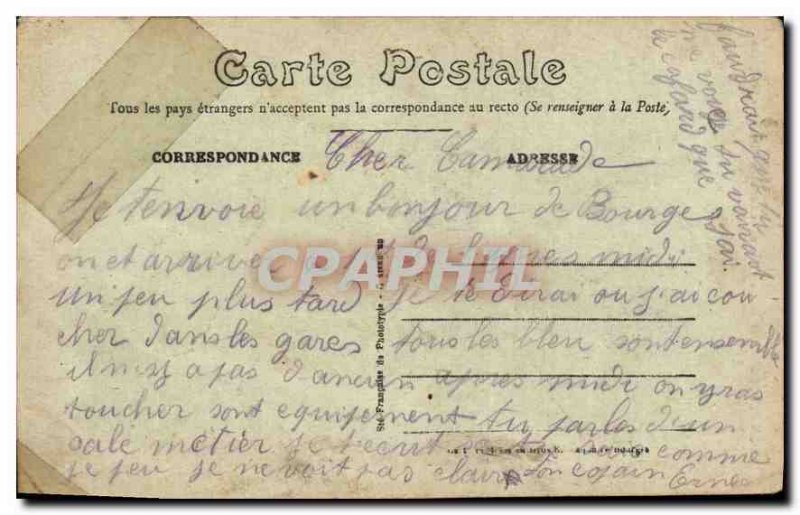 Carte Postale
Tous les pays étrangers n'acceptent pas la correspondance au recto (Se renseigner à la Poste)
CORRESPONDANCE ADRESSE
Cher Camarade
Je tenvoie un bonjour de Bourges
on et arrive de lapres midi
un peu plus tard je te dirai ou j'ai cou
cher dans les gares tous les bleu sont ensemble
il ni y a pas d'ancien apres midi on yras
toucher sont equipement tu parles d'un
sale metier je tecrit comme
je peu je ne voit pas claire ton copain Ernes
faudrait que tu
ne vois du vaivant
le cafard que j'ai.
CPAPHIL
Sté Française de Phototypie